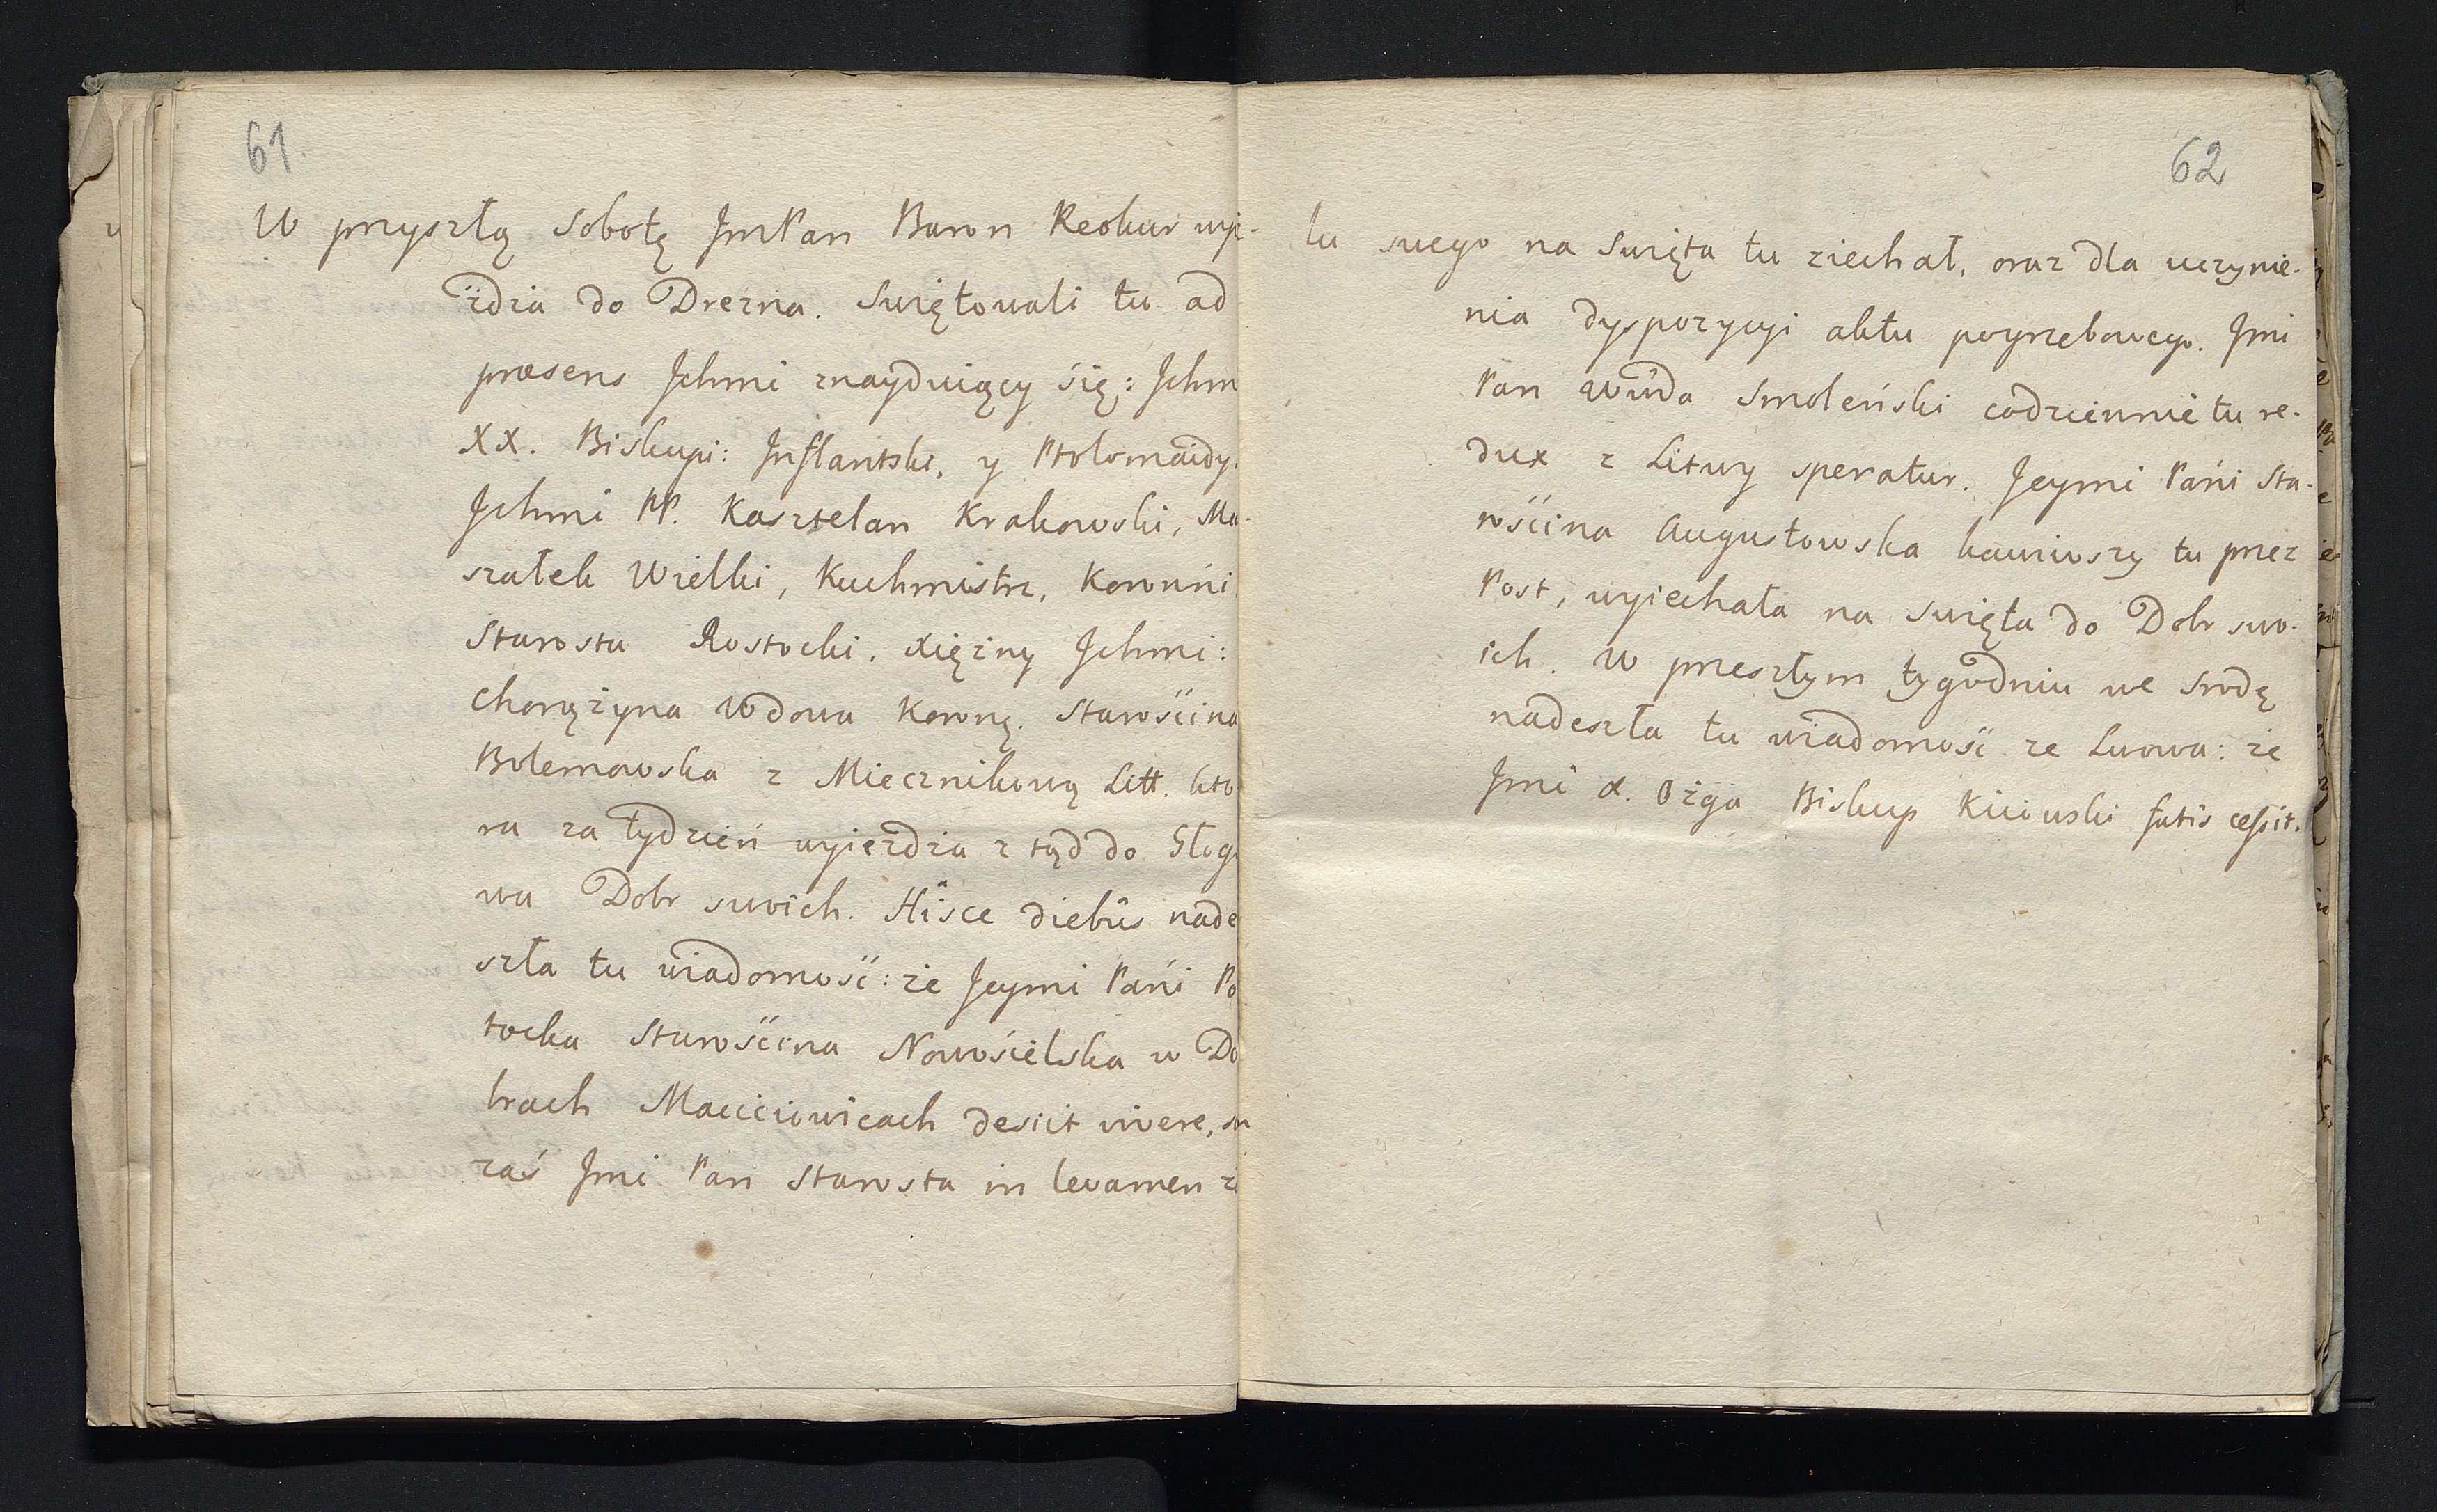 61.
W przyszłą Sobotę JmPan Baron Reskur wyie-
żdża do Drezna. Swiętowali tu ad
præsens Jchmi znayduiący się: Jchm
XX. Biskupi: Jnflantski, y Ptolomaidy.
Jchmi PP. Kasztelan Krakowski, Ma-
szałek Wielki, Kuchmistrz, Koronni
Starosta Rostocki. Xięzny Jchmi:
Chorązyna Wdowa Koronę. Starościna
Bolemowska z Miecznikową Litt. kto
ra za tydzień wyiezdza z tąd do Głogo
wa Dobr swoich. Hisce diebûs nade
szła tu wiadomość: że Jeymi Pani Po
tocka Starościna Nowosielska w Do
brach Macieiowicach desiit vivere, sn
zaś Jmi Pan Starosta in levamen ża
62
lu swego na Swięta tu ziechał, oraz dla uczynie-
nia dyspozycyi aktu pogrzebowego. Jmi
Pan Wüda Smoleński codziennie tu re-
dux z Litwy speratur. Jeymi Pani Sta-
rościna Augustowska bawiwszy tu przez
Post, wyiechała na Swięta do Dobr swo-
ich. W przeszłym tygodniu we Srodę
nadeszła tu wiadomość ze Lwowa: że
Jmi X. Ożga Biskup Kiiowski fatis cessit.